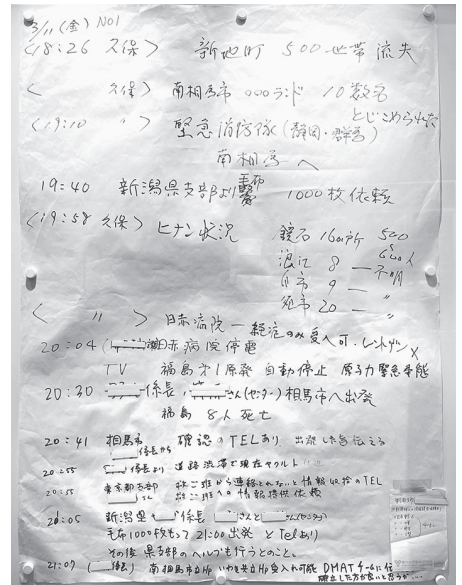 3/11(金) NO1
<18:26 久保> 新地町 500世帯 流失
< 久保> 南相馬市 ○○○ランド 10数名
とじこめられた
<19:10 〃> 緊急消防隊(静岡・群馬)
南相馬へ
19:40 新潟県支部より毛布 1000枚依頼
<19:58 久保> ヒナン状況 鏡石 16ヵ所 520
浪江 8 ― 600人
白市 9 ― 不明
〃市 20 ― 〃
< 〃 > 日赤病院 ― 絶泡のみ受入可・レントゲン×
20:04 日赤病院停電
TV 福島第1原発 自動停止 原子力緊急事態
20:30 係長, さん(センター)相馬市へ出発
福島 8人死亡
20:41 相馬市 確認のTELあり 出発した旨伝える
係長から
20:55 係長より 道路渋滞で現在ヤクルト
20:55 東京都支部 救ご班から連絡とれないと情報収拾のTEL
救ご班への情報提供依頼
20:05 新潟県 係長 さんと さん(センター)
毛布1000枚もって21:00出発とTelあり
その後 県支部のヘルプも行うとのこと。
21:07 ( 係長) 南相馬市立Hp いわき共立Hp受入れ可能 DMAT
確立した方が良いと思うが…